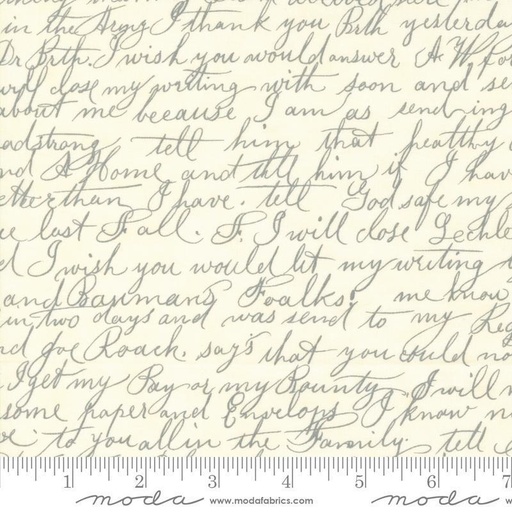 in the Army I thank you Brth yesterda
Dr Brth. I wish you would answer A W for
will close my writing with soon and se
about me because I am as sending
adstrong tell him that healthy
nd A Home and tell him if I hav
etter than I have. tell God safe my
ue last Fall. F. I will close Lechle
d I wish you would let my writing
and Banmans Foalks! me know
in two days and was send to my Reg
nd Joe Roach. say's that you could no
I get my Pay or my Bounty I will
some paper and Envelops I know n
ve to you all in the Family. tell
1 2 3 4 5 6 7
moda www.modafabrics.com moda www.modafabrics.com moda